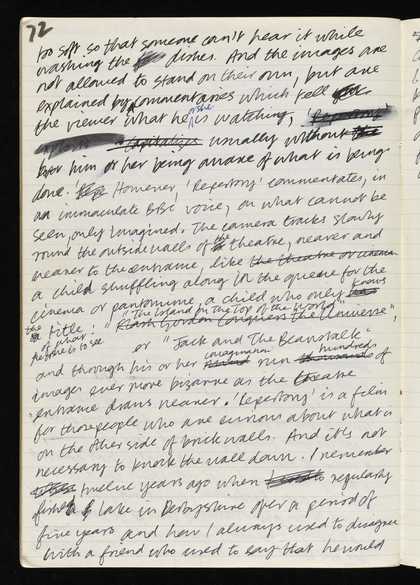 72
too soft so that someone can't hear it while
washing the dishes. And the images are
not allowed to stand on their own, but are
explained by commentaries which tell
the viewer what he/she is watching, 'Repertory'
capitalizes usually without the
him or her being aware of what is being
done. However, 'Repertory' commentates, in
an immaculate BBC voice, on what cannot be
seen, only imagined. The camera tracks slowly
round the outside walls of the theatre, nearer and
nearer to the entrance, like the theatre or cinema
a child shuffling along in the queue for the
cinema or pantomime, a child who only knows the
the title: "Flash Gordon Conquers the Universe", "The Island on the Top of the World"
of what he/she is to see
or "Jack and The Beanstalk",
and through his or her imagination run thousands hundreds of
images ever more bizarre as the theatre
entrance draws nearer. 'Repertory' is a film
for those people who are curious about what is
on the other side of brick walls. And it's not
necessary to knock the wall down. I remember
twelve years ago when I used to regularly
fish a lake in Derbyshire over a period of
five years and how I always used to disagree
with a friend who used to say that he would